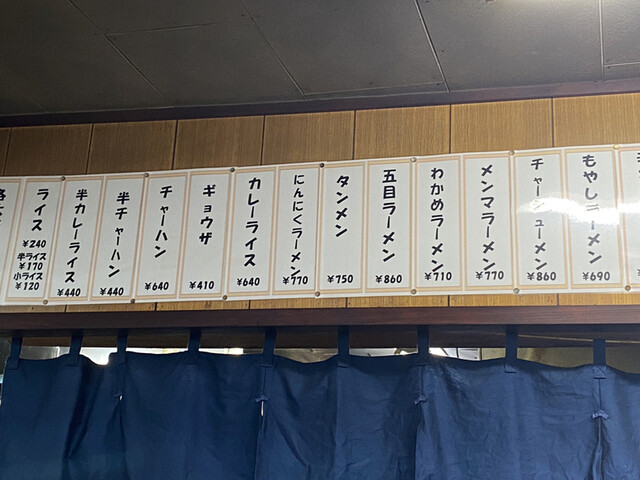 もやしラーメン
¥690
チャーシューメン
¥860
メンマラーメン
¥770
わかめラーメン
¥710
五目ラーメン
¥860
タンメン
¥750
にんにくラーメン
¥770
カレーライス
¥640
ギョウザ
¥410
チャーハン
¥640
半チャーハン
¥440
半カレーライス
¥440
ライス
¥240
半ライス
¥170
小ライス
¥120